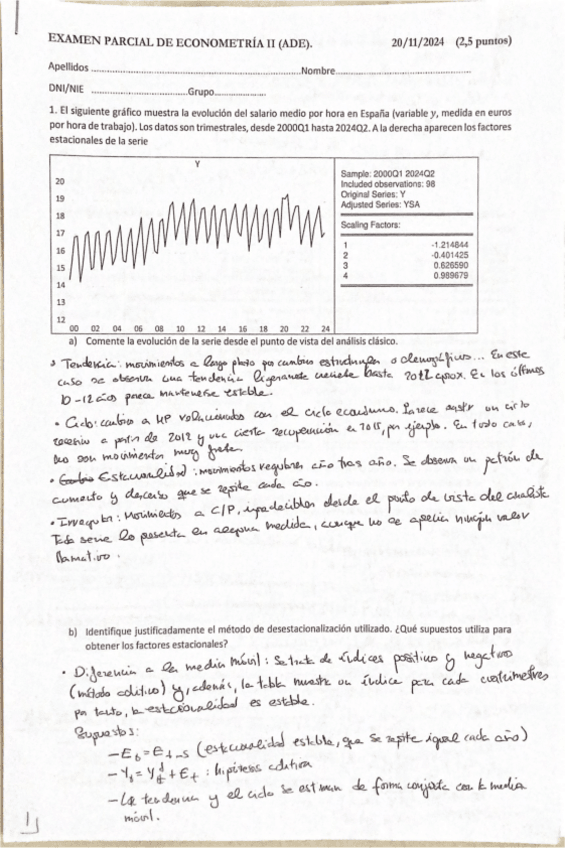 EXAMEN PARCIAL DE ECONOMETRÍA II (ADE). 20/11/2024 (2,5 puntos)
Apellidos ...............................................................Nombre...............................................
DNI/NIE ...............................Grupo...................
1. El siguiente gráfico muestra la evolución del salario medio por hora en España (variable y, medida en euros
por hora de trabajo). Los datos son trimestrales, desde 2000Q1 hasta 2024Q2. A la derecha aparecen los factores
estacionales de la serie
Y
20
19
18
17
16
15
14
13
12
00 02 04 06 08 10 12 14 16 18 20 22 24
Sample: 2000Q1 2024Q2
Included observations: 98
Original Series: Y
Adjusted Series: YSA
Scaling Factors:
1 -1.214844
2 -0.401425
3 0.626590
4 0.989679
a) Comente la evolución de la serie desde el punto de vista del análisis clásico.
Tendencia: movimientos a largo plazo por cambios estructurales o demográficos... En este
caso se observa una tendencia ligeramente creciente hasta 2012 aprox. En los últimos
10-12 años parece mantenerse estable.
• Ciclo: cambios a MP relacionados con el ciclo económico. Parece existir un ciclo
recesivo a partir de 2012 y una cierta recuperación en 2015, por ejemplo. En todo caso,
no son movimientos muy
• Estacionalidad: movimientos regulares año tras año. Se observa un patrón de
aumento y descenso que se repite cada año.
• Irregular: Movimientos a C/P, impredecibles desde el punto de vista del analista
Toda serie lo presenta en alguna medida, aunque no se aprecia ningún valor
llamativo.
b) Identifique justificadamente el método de desestacionalización utilizado. ¿Qué supuestos utiliza para
obtener los factores estacionales?
• Diferencia a la media móvil: Se trata de índices positivos y negativos
(método aditivo) y, además, la tabla muestra un índice para cada cuatrimestres
por tanto, la estacionalidad es estable.
Supuestos:
- Et = Et-s (estacionalidad estable, que se repite igual cada año)
- Yt = Ytd + Et : hipótesis aditiva
- La tendencia y el ciclo se estiman de forma conjunta con la media
móvil.
1